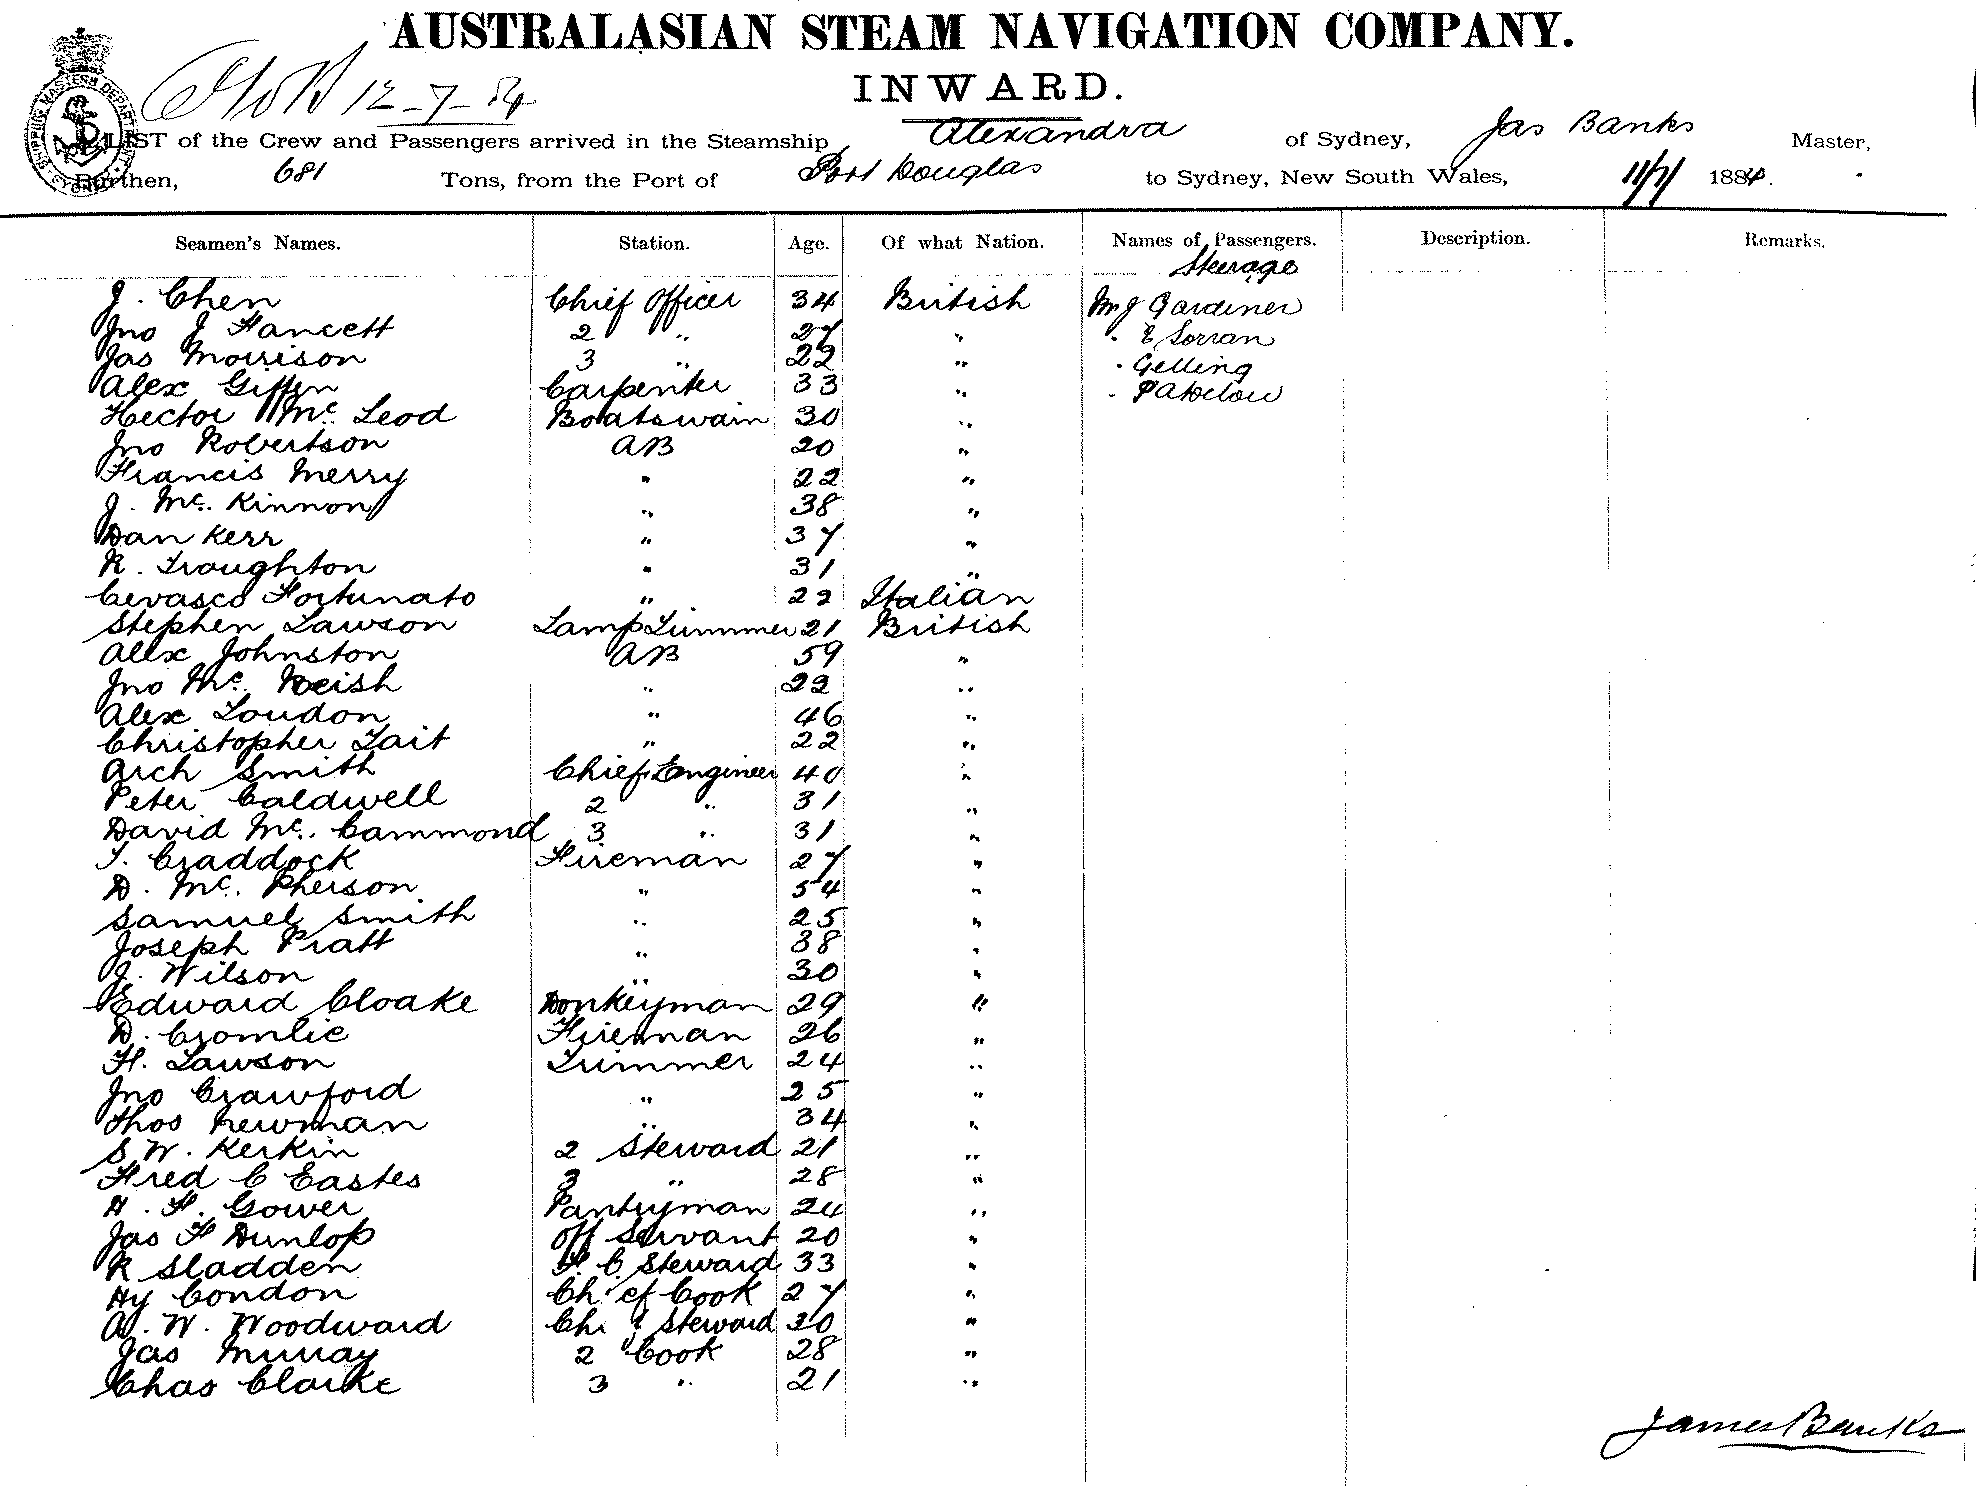 AUSTRALASIAN STEAM NAVIGATION COMPANY.
INWARD.
12-7-84
LIST of the Crew and Passengers arrived in the Steamship Alexandra of Sydney, Jas Banks Master,
Burthen, 681 Tons, from the Port of Port Douglas to Sydney, New South Wales, 11/7/ 1884.
Seamen's Names. Station. Age. Of what Nation. Names of Passengers. Description. Remarks.
Steerage
J. Chen Chief Officer 34 British Mr J Gardiner
Jno J Fancett 2 " 27 " " E Sorran
Jas Morrison 3 " 22 " " Gelling
Alex Giffen Carpenter 33 " "
Hector Mc Leod Boatswain 30 "
Jno Robertson AB 20 "
Francis Merry " 22 "
J. Mc. Kinnon " 38 "
Dan Kerr " 37 "
R. Troughton " 31 "
Cevasco Fortunato " 22 Italian
Stephen Lawson Lamp Trimmer 21 British
Alex Johnston AB 59 "
Jno Mc. Neish " 22 "
Alex Loudon " 46 "
Christopher Tait " 22 "
Arch Smith Chief Engineer 40 "
Peter Caldwell 2 " 31 "
David Mc. Cammond 3 " 31 "
T. Craddock Fireman 27 "
D. Mc. Pherson " 54 "
Samuel Smith " 25 "
Joseph Pratt " 38 "
J. Wilson " 30 "
Edward Cloake Donkeyman 29 "
D. Cromlie Fireman 26 "
H. Lawson Trimmer 24 "
Jno Crawford " 25 "
Thos Newman " 34 "
S. W. Kerkin 2 Steward 21 "
Fred C Eastes 3 " 28 "
H. F. Gower Pantryman 24 "
Jas F Dunlop Off Servant 20 "
R Sladden F. C. Steward 33 "
Hy Condon Chief Cook 27 "
A. W. Woodward Chief Steward 30 "
Jas Murray 2 Cook 28 "
Chas Clarke 3 " 21 "
James Banks